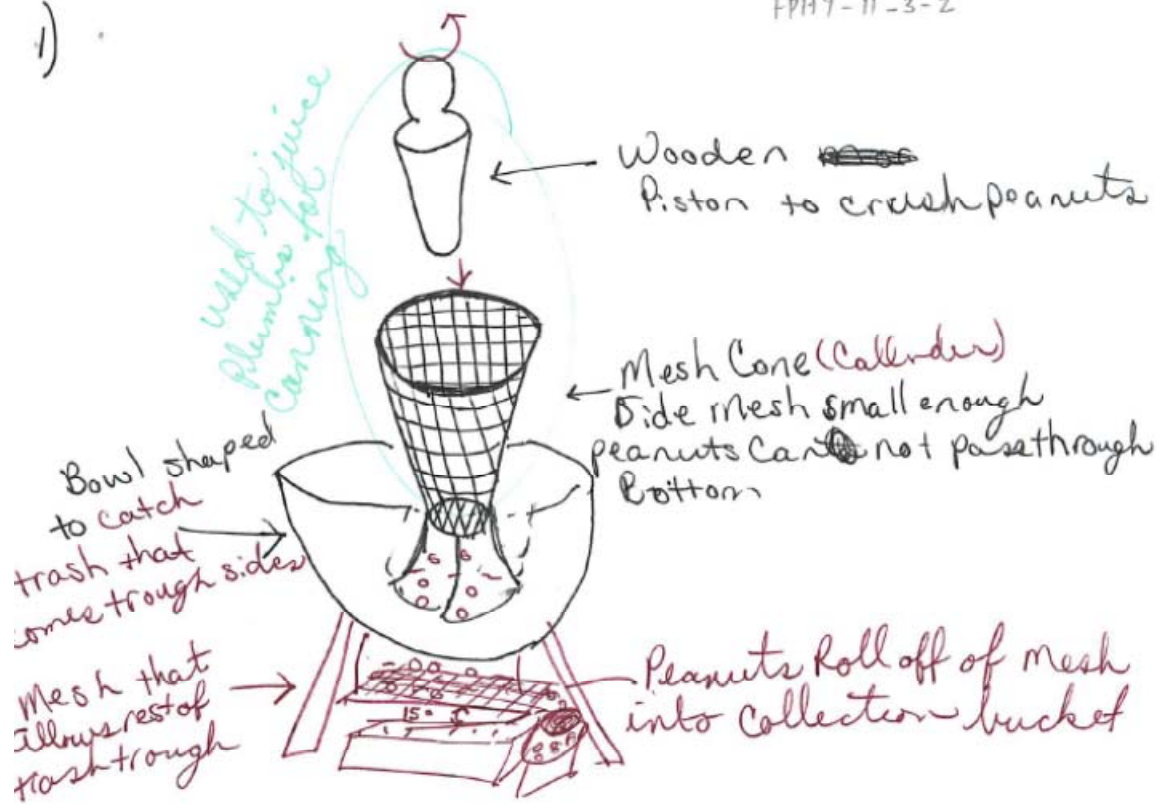 1)
FPH9-11-3-2
used to juice
Plumbs for
Canning
Wooden
Piston to crush peanuts
Mesh Cone (Callender)
Side mesh small enough
peanuts can not pass through
Bottom
Bowl shaped
to catch
trash that
comes trough sides
Mesh that
allows rest of
trash trough
15°
Peanuts Roll off of Mesh
into collection bucket